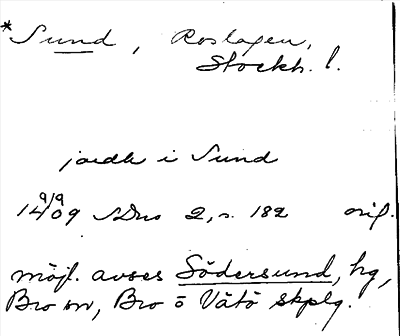 *Sund, Roslagen,
Stockh. l.
jordh i Sund
14 9/9 09 SDns 2, s. 182 orig.
möjl. avses Södersund, hg,
Bro sn, Bro o Vätö skplg.